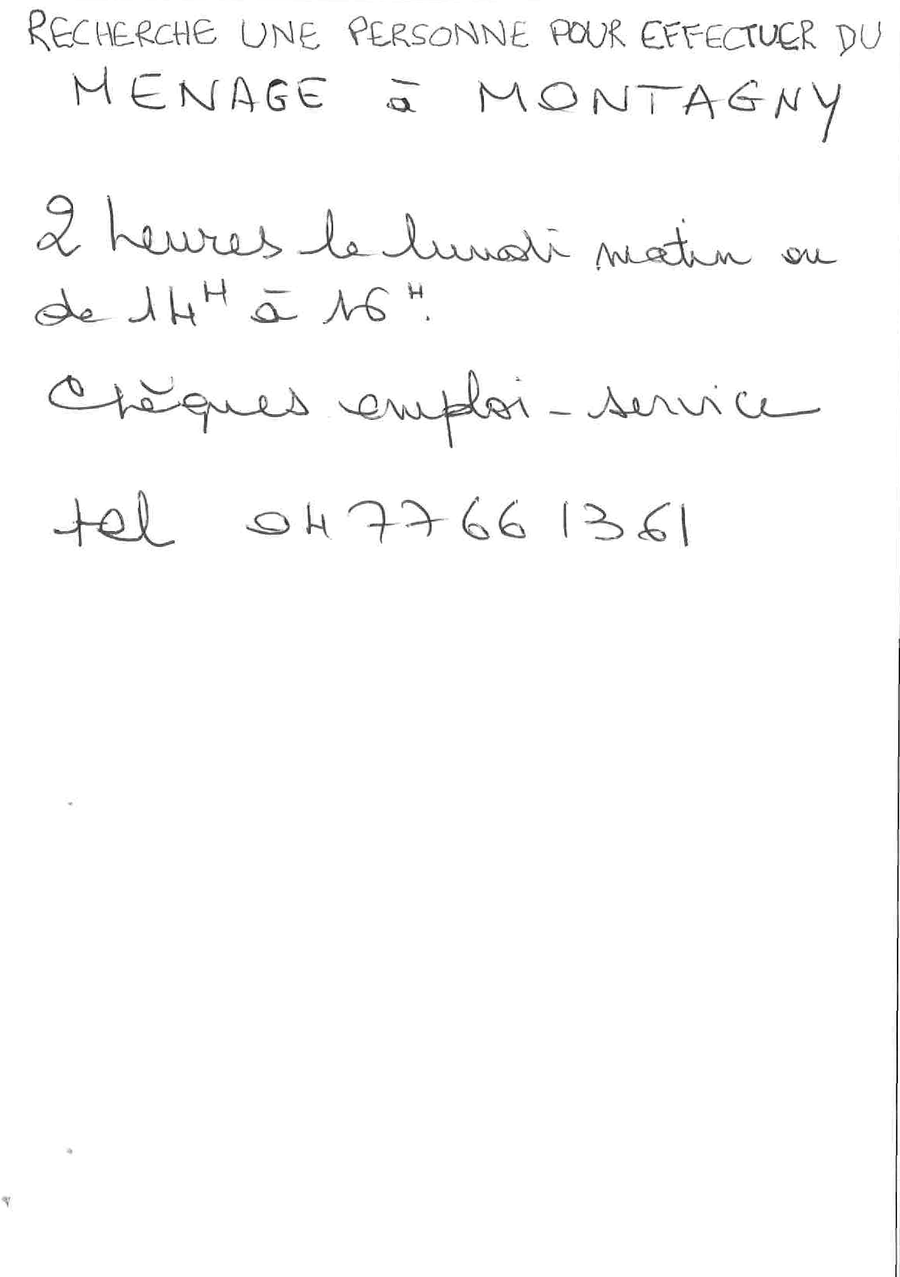 RECHERCHE UNE PERSONNE POUR EFFECTUER DU
MENAGE à MONTAGNY
2 heures le lundi matin ou
de 14H à 16H.
Chèques emploi-service
tel 04 77 66 13 61